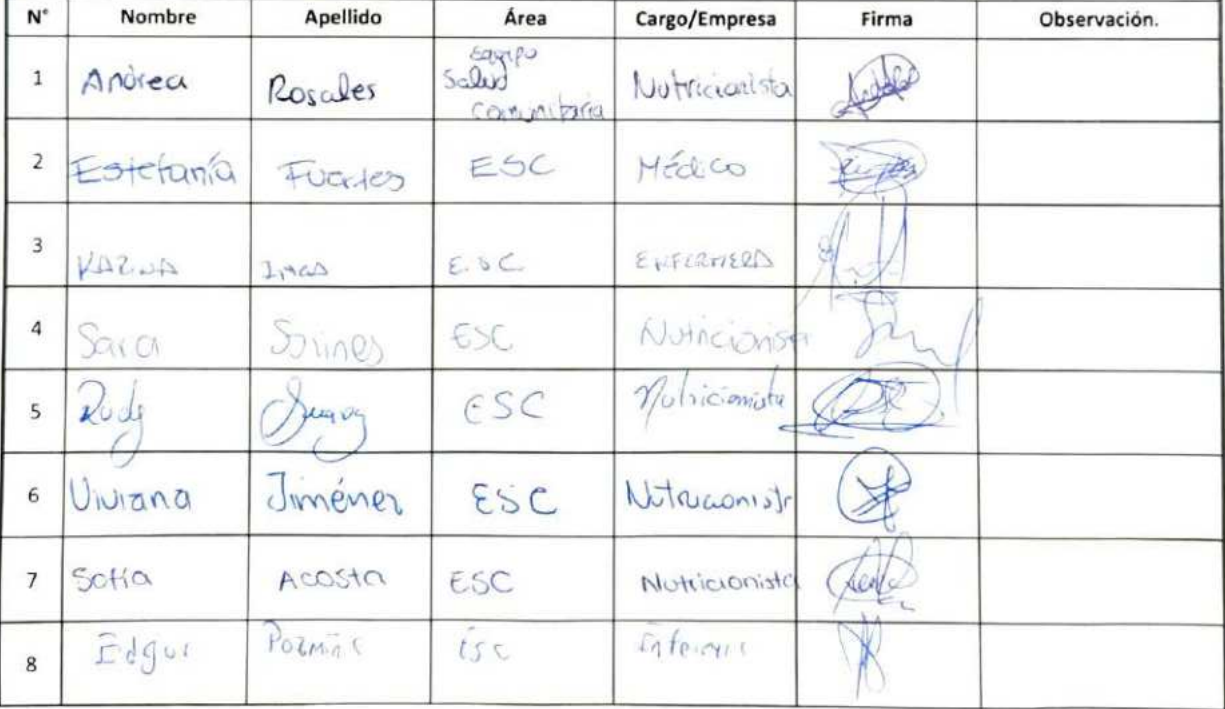 N° Nombre Apellido Área Cargo/Empresa Firma Observación.
1 Andrea Rosales Equipo Salud Comunitaria Nutricionista
2 Estefanía Fuertes ESC Médico
3 KARINA E.S.C. ENFERMERA
4 Sara ESC Nutricionista
5 Rudy ESC Nutricionista
6 Viviana Jiménez ESC Nutricionista
7 Sofía Acosta ESC Nutricionista
8 Edgar ESC